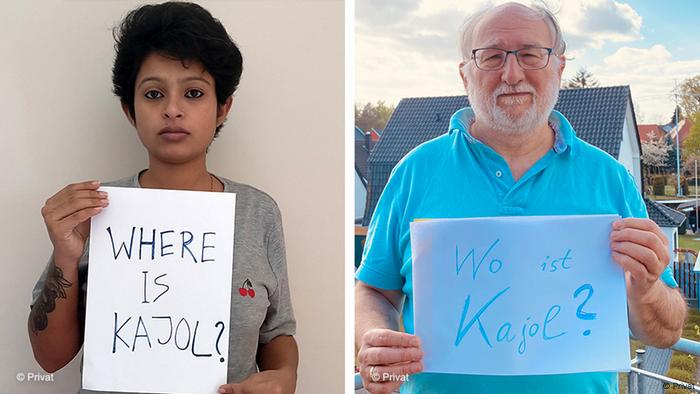 WHERE
IS
KAJOL?
© Privat
Wo ist
Kajol?
© Privat
© Privat